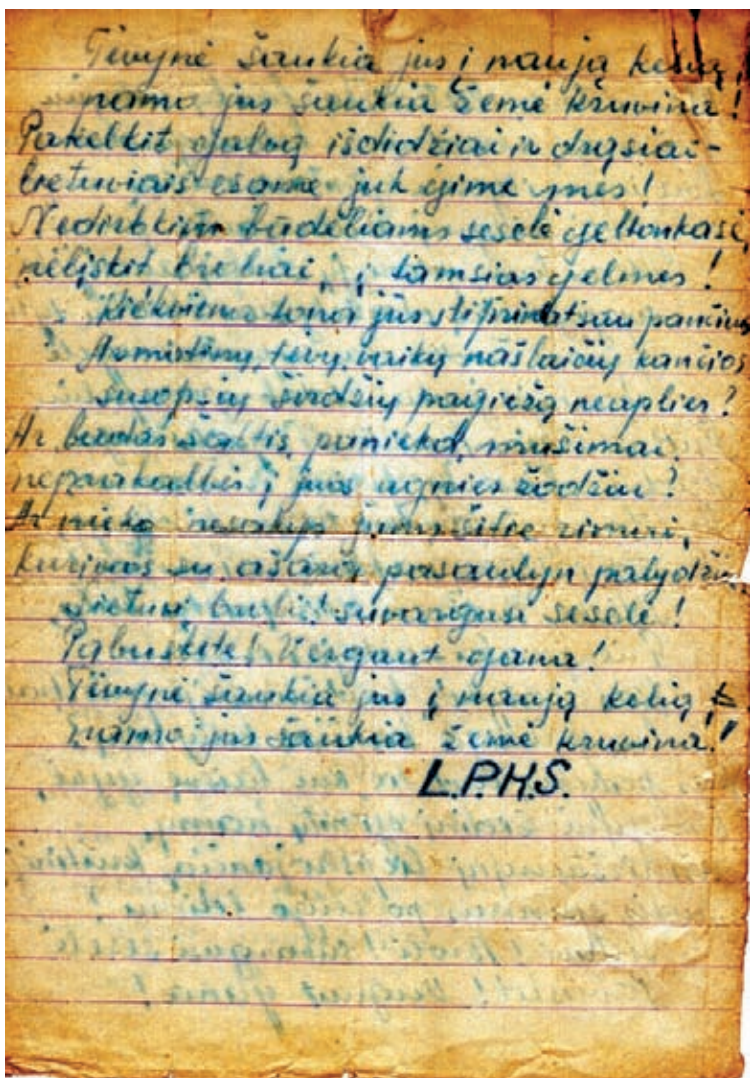 Tėvynė šaukia jus į naują kelią,
namo jus šaukia žemė kruvina!
Pakelkit galvą išdidžiai ir drąsiai-
lietuviais esame juk gimę mes!
Nedirbkim budeliams sesele geltonkase,
nelįskit broliai, į tamsias gelmes!
Kiekviena tona jūs stiprinat sau pančius,
Ar mirtinų tėvų, vaikų našlaičių kančios
susopsių širdžių pagiežą neaplies?
Ar badas šaltis, panieka, mušimai,
neprakalbės į juos ugnies žodžiu?
Ar nieko nesakys jums šitie
kuriuos su ašarom pasaulyn palydžiu
Lietuvi broli! suvargusi sesele!
Pabuskite! Vergaut gana!
Tėvynė šaukia jus į naują kelią,
namo jus šaukia žemė kruvina!"
L.P.H.S.